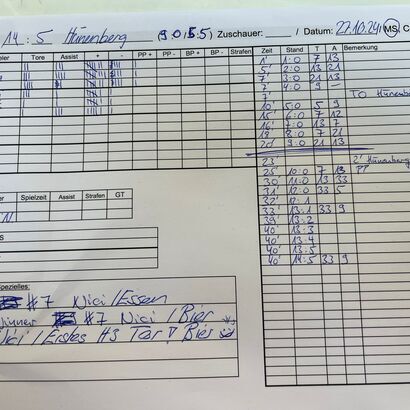 14:5 Hünenberg (9:0, 5:5) Zuschauer: / Datum: 27.10.24 / MS, C
Tore Assist + - PP + PP - BP + BP - Strafen
Zeit Stand T A Bemerkung
1' 1:0 7 13
5' 2:0 13 21
7' 3:0 21 13
7' 4:0 9 –
7' TO Hünenbe
10' 5:0 5 9
15' 6:0 7 12
16' 7:0 13 7
18' 8:0 7 21
20' 9:0 21 13
23' 2' Hünenberg
25' 10:0 7 13 PP
30' 11:0 13 33
31' 12:0 33 5
32' 12:1
33' 13:1 33 9
39' 13:2
40' 13:3
40' 13:4
40' 13:5
40' 14:5 33 9
Spielzeit Assist Strafen GT
Spezielles:
#7 Nici/Essen
#7 Nici / Bier
/Erstes #3 Tor Bier